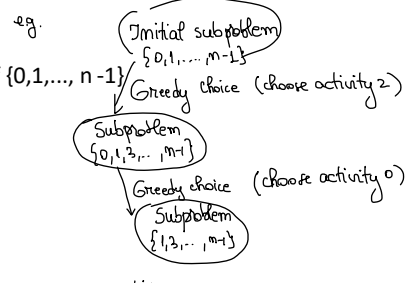 eg.
Initial subproblem
{0,1,...,n-1}
{0,1,..., n -1}
Greedy choice (choose activity 2)
Subproblem
{0,1,3,..,n-1}
Greedy choice (choose activity 0)
Subproblem
{1,3,..,n-1}